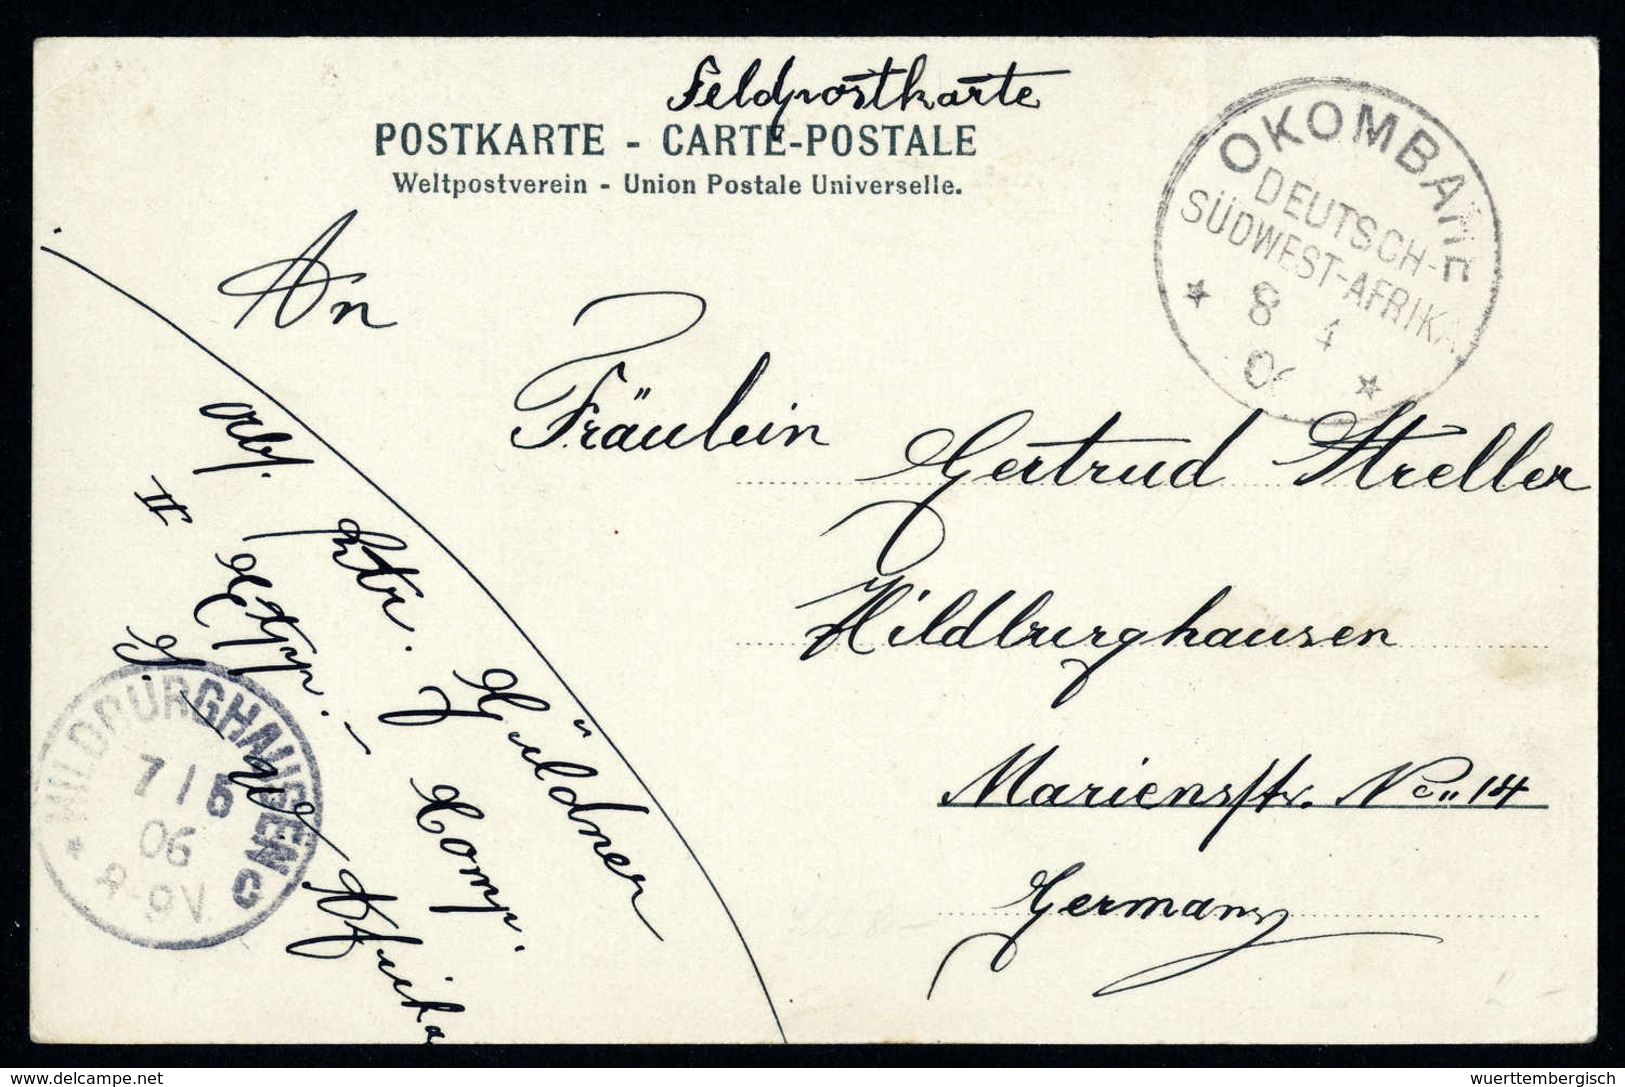 Feldpostkarte
POSTKARTE - CARTE-POSTALE
Weltpostverein - Union Postale Universelle.
OKOMBAHE
DEUTSCH-
SÜDWEST-AFRIKA
8 4
06
An
Fräulein
Gertrud Streller
Hildburghausen
Marienstr. No 14
Germany
Abs. Gftr. Güldner
II Etpp. - Comp.
S. W. Afrika
HILDBURGHAUSEN C
7/5
06
8-9V.
wuerttembergisch